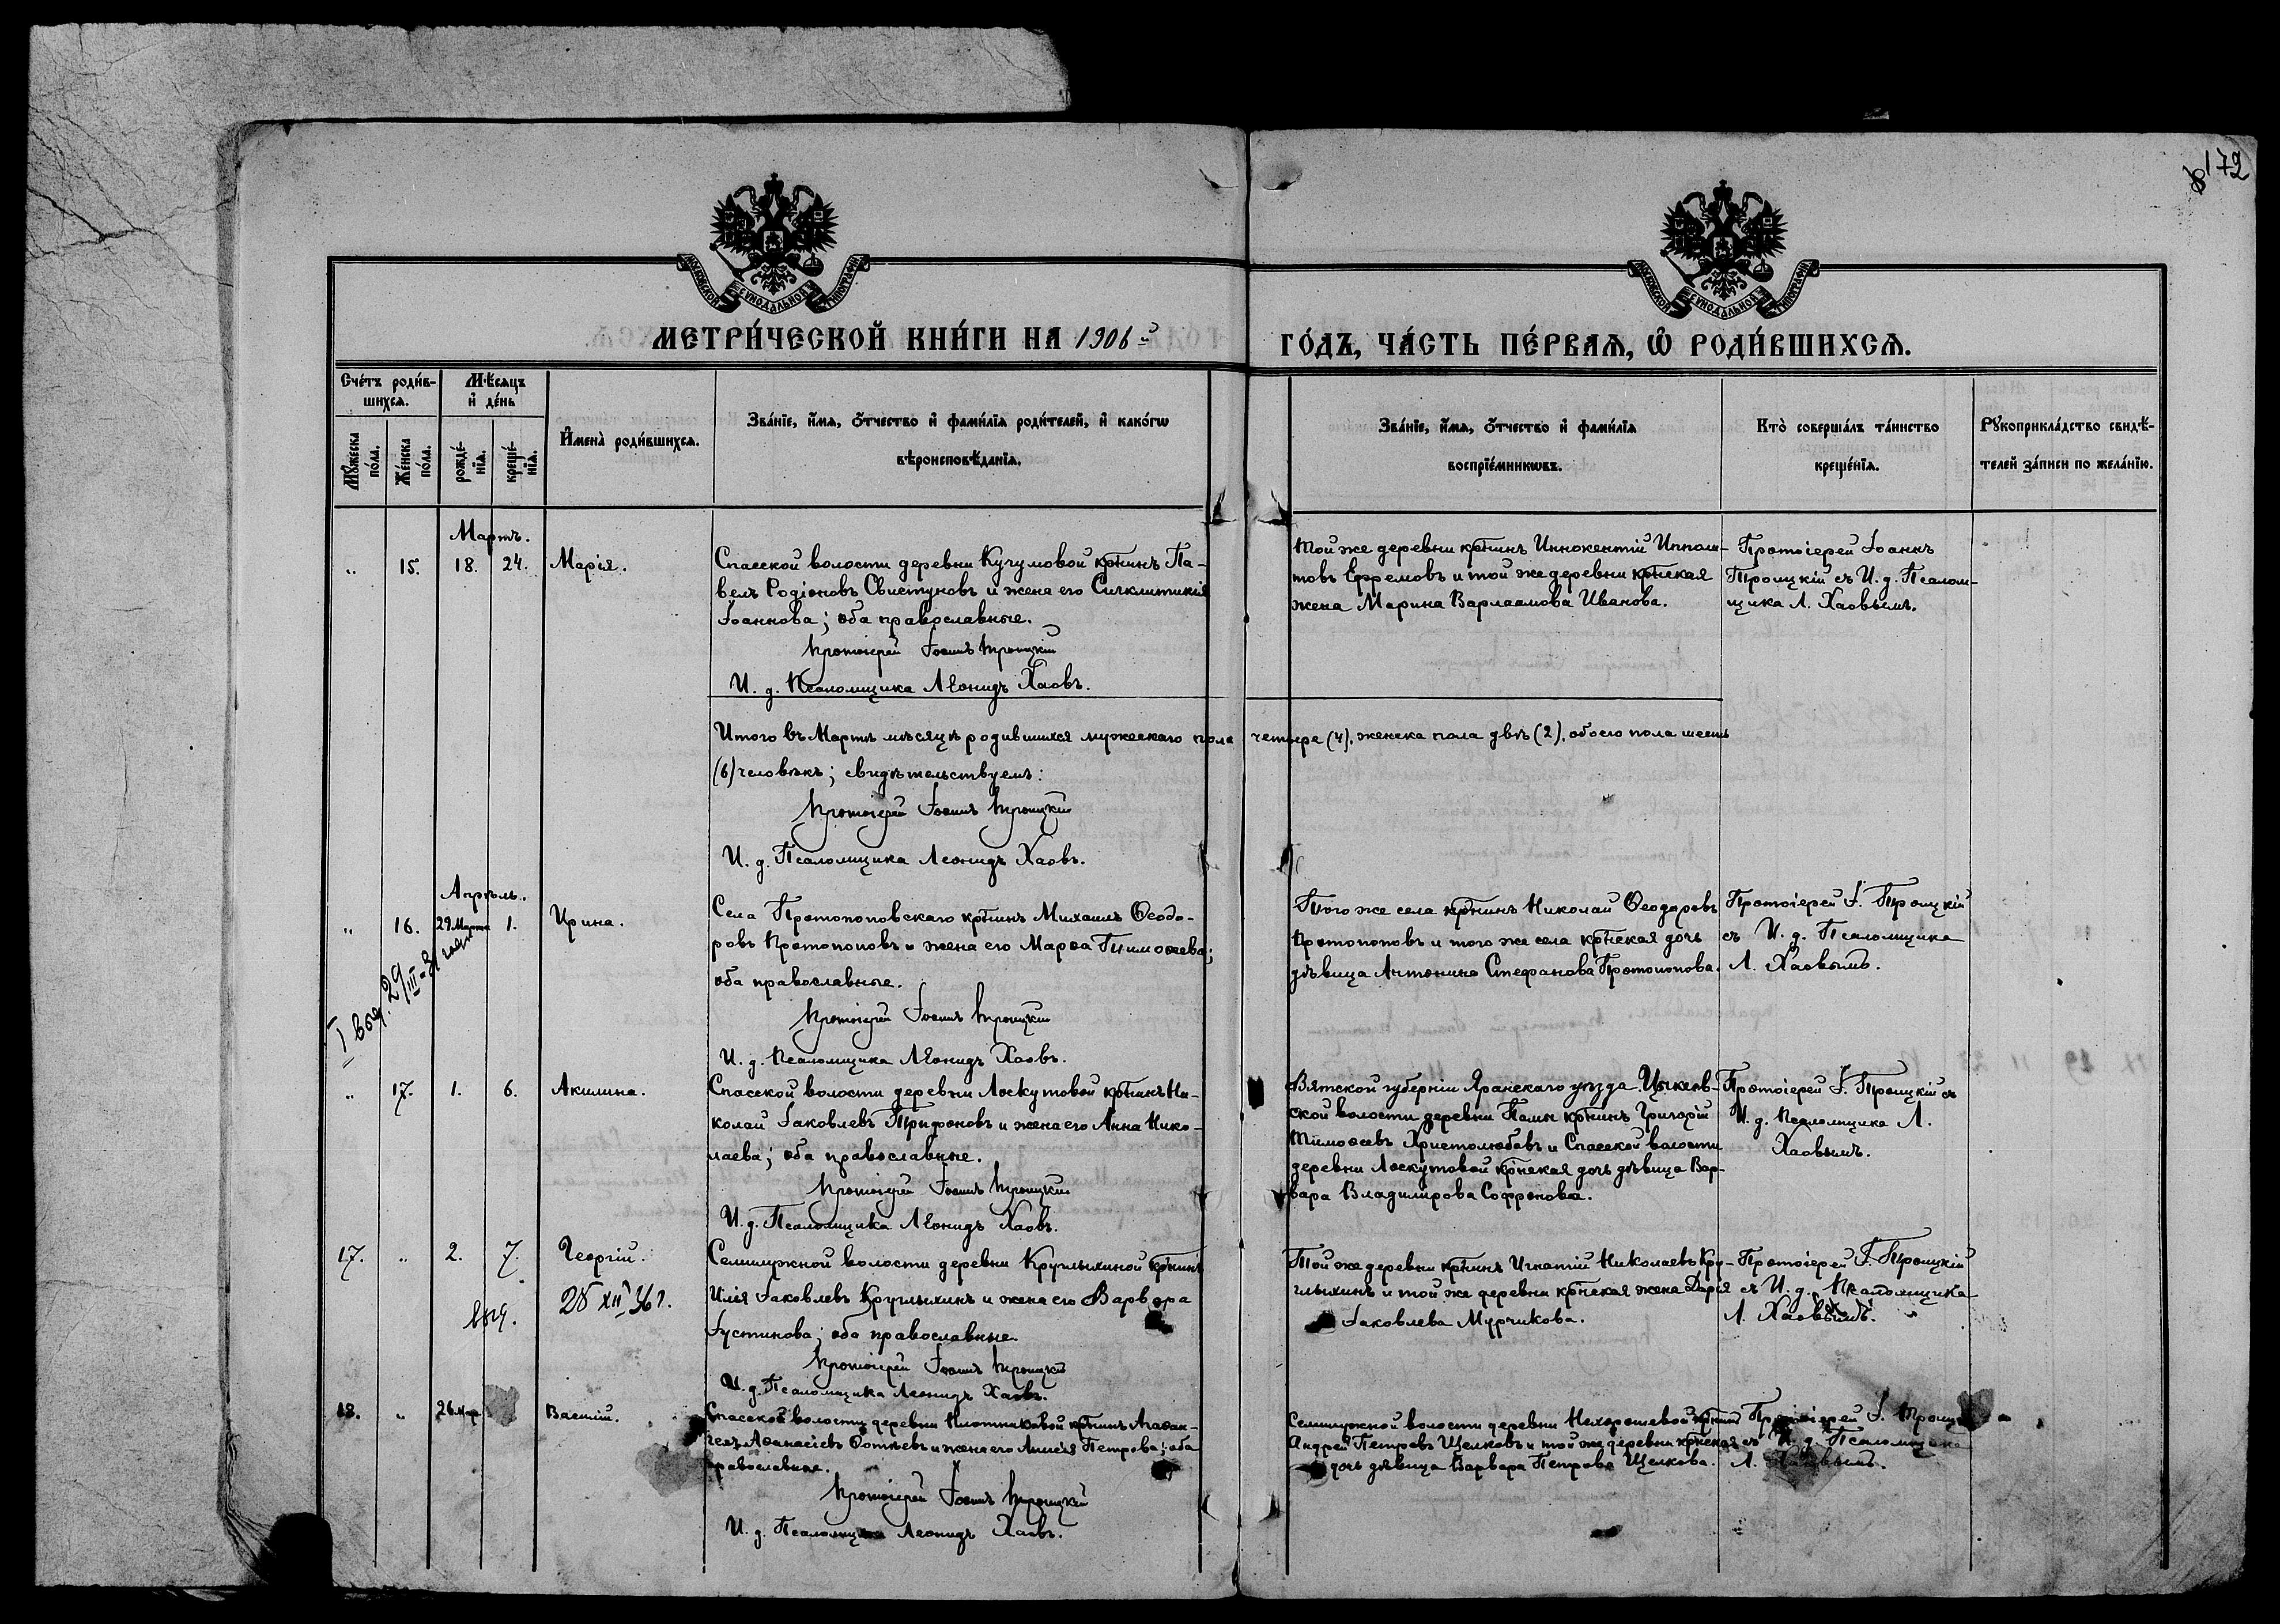 172
МОСКОВСКОЙ СѴНОДАЛЬНОЙ ТИПОГРАФІИ
МОСКОВСКОЙ СѴНОДАЛЬНОЙ ТИПОГРАФІИ
МЕТРИ́ЧЕСКОЙ КНИ́ГИ НА 1906й
ГО́ДЪ, ЧА́СТЬ ПЕ́РВАѦ, Ѡ РОДИ́ВШИХСѦ.
Сче́тъ роди́в-
шихсѧ.
Мѣ́сѧцъ
и де́нь
Мꙋ́жеска
по́ла.
Же́нска
по́ла.
рожде́-
нїѧ.
креще́-
нїѧ.
Имена̀ роди́вшихсѧ.
Зва́нїе, и́мѧ, ѻ́тчество и фами́лїѧ роди́телей, и како́гѡ
вѣроисповѣ́данїѧ.
Зва́нїе, и́мѧ, ѻ́тчество и фами́лїѧ
воспрїе́мникѡвъ.
Кто̀ соверша́лъ та́инство
креще́нїѧ.
Рꙋкоприкла́дство свидѣ́-
телей за́писи по жела́нїю.
Мартъ.
„ 15. 18. 24. Марія.
Спасской волости деревни Кучумовой кр̄нинъ Па-
велъ Родіоновъ Свистуновъ и жена его Синклитикія
Іоаннова; оба православные.
Протоіерей Іоаннъ Троицкій
И. д. Псаломщика Леонидъ Хаовъ.
Той же деревни кр̄нинъ Иннокентій Иппали-
товъ Ефремовъ и той же деревни кр̄нская
жена Марина Варлаамова Иванова.
Протоіерей Іоаннъ
Троицкій съ И. д. Псалом-
щика Л. Хаовымъ.
Итого въ Мартѣ мѣсяцѣ родившихся мужескаго пола четыре (4), женска пола двѣ (2), обоего пола шесть
(6) человѣкъ; свидѣтельствуемъ:
Протоіерей Іоаннъ Троицкій
И. д. Псаломщика Леонидъ Хаовъ.
Апрѣль.
„ 16. 29 Марта 1. Ирина.
Села Протопоповскаго кр̄нинъ Михаилъ Ѳеодо-
ровъ Протопоповъ и жена его Марѳа Тимоѳеева;
оба православные.
Протоіерей Іоаннъ Троицкій
И. д. Псаломщика Леонидъ Хаовъ.
Того же села кр̄нинъ Николай Ѳеодоровъ
Протопоповъ и того же села кр̄нская дочь
дѣвица Антонина Стефанова Протопопова.
Протоіерей І. Троицкій
съ И. д. Псаломщика
Л. Хаовымъ.
I выд. 29/III-31 года
„ 17. 1. 6. Акилина.
Спасской волости деревни Лоскутовой кр̄нинъ Ни-
колай Іаковлевъ Трифоновъ и жена его Анна Нико-
лаева; оба православные.
Протоіерей Іоаннъ Троицкій
И. д. Псаломщика Леонидъ Хаовъ.
Вятской губерніи Яранскаго уѣзда
ской волости деревни кр̄нинъ Григорій
Тимоѳеевъ Христолюбовъ и Спасской волости
деревни Лоскутовой кр̄нская дочь дѣвица Вар-
вара Владимірова Софронова.
Протоіерей І. Троицкій съ
И. д. Псаломщика Л.
Хаовымъ.
17. „ 2. 7. Георгій.
выд. 28 XII 36 г.
Семилужной волости деревни Круглыхиной кр̄нинъ
Илія Іаковлевъ Круглыхинъ и жена его Варвара
Іустинова; оба православные.
Протоіерей Іоаннъ Троицкій
И. д. Псаломщика Леонидъ Хаовъ.
Той же деревни кр̄нинъ Игнатій Николаевъ Кру-
глыхинъ и той же деревни кр̄нская жена Дарія
Іаковлева Мурчикова.
Протоіерей І. Троицкій
съ И. д. Псаломщика
Л. Хаовымъ.
18. „ 26 Мар. Василій.
Спасской волости деревни Плотниковой кр̄нинъ Агаѳан-
гелъ Аѳанасіевъ Ѳотѣевъ и жена его Петрова; оба
православные.
Протоіерей Іоаннъ Троицкій
И. д. Псаломщика Леонидъ Хаовъ.
Семилужной волости деревни Нехорошевой кр̄нинъ
Андрей Петровъ Щелковъ и той же деревни кр̄нская
дочь дѣвица Варвара Петрова Щелкова.
Протоіерей І. Троиц
съ И. д. Псаломщика
Л. Хаовымъ.